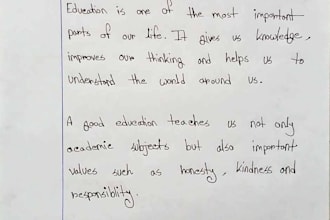 Education is one of the most important
parts of our life. It gives us knowledge,
improves our thinking and helps us to
understand the world around us.
A good education teaches us not only
academic subjects but also important
values such as honesty, kindness and
responsiblity.